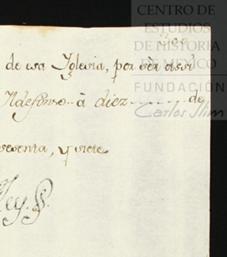 CENTRO DE
ESTUDIOS
DE HISTORIA
DE MÉXICO
FUNDACIÓN
Carlos Slim
de esa Yglesia, por ser assi
Ildefonso à diez de
y siete